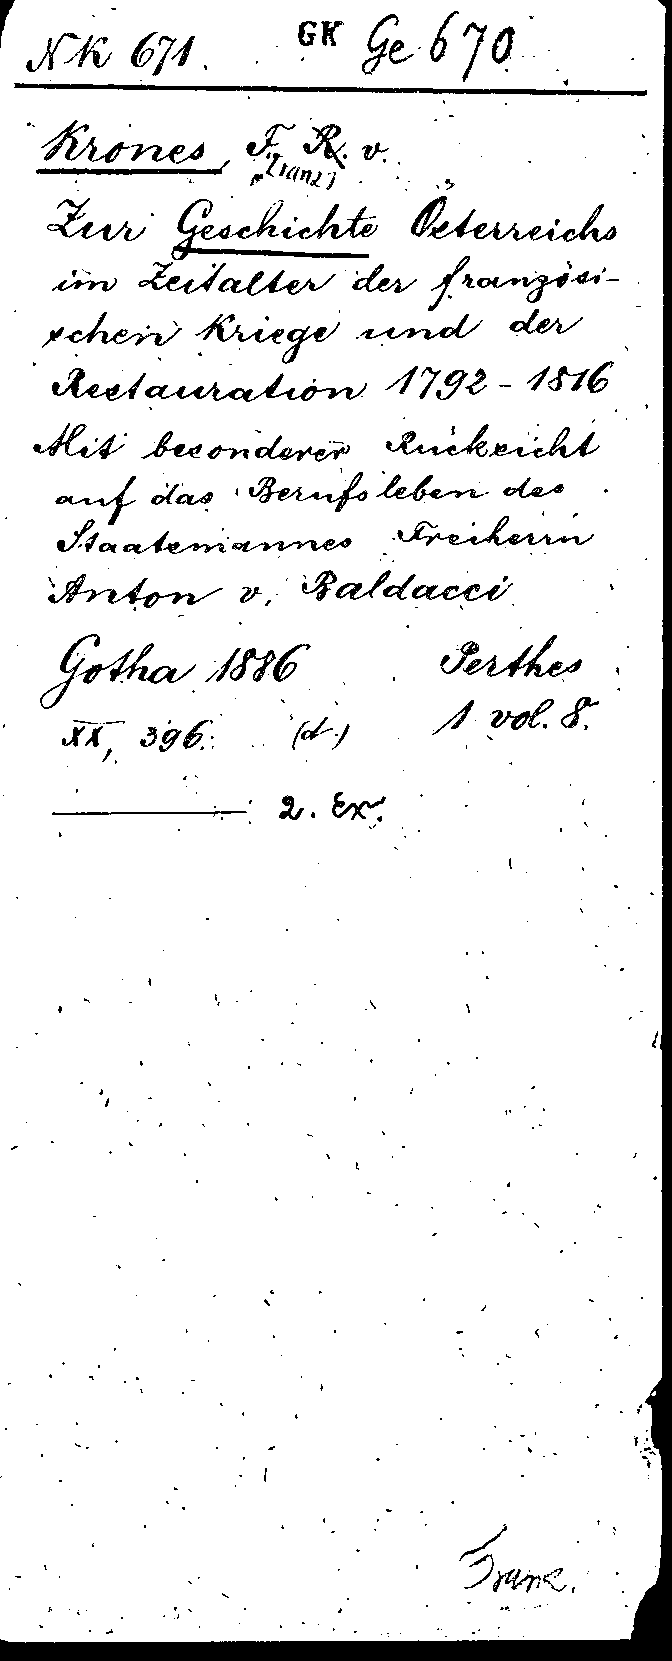 NK 671. GK Ge 670
Krones, F. R. v.
(Franz)
Zur Geschichte Österreichs
im Zeitalter der französi-
schen Kriege und der
Restauration 1792 - 1816
Mit besonderer Rücksicht
auf das Berufsleben des
Staatsmannes Freiherrn
Anton v. Baldacci
Gotha 1886 Perthes
XX, 396. (d.) 1 vol. 8.
——— 2. Ex.